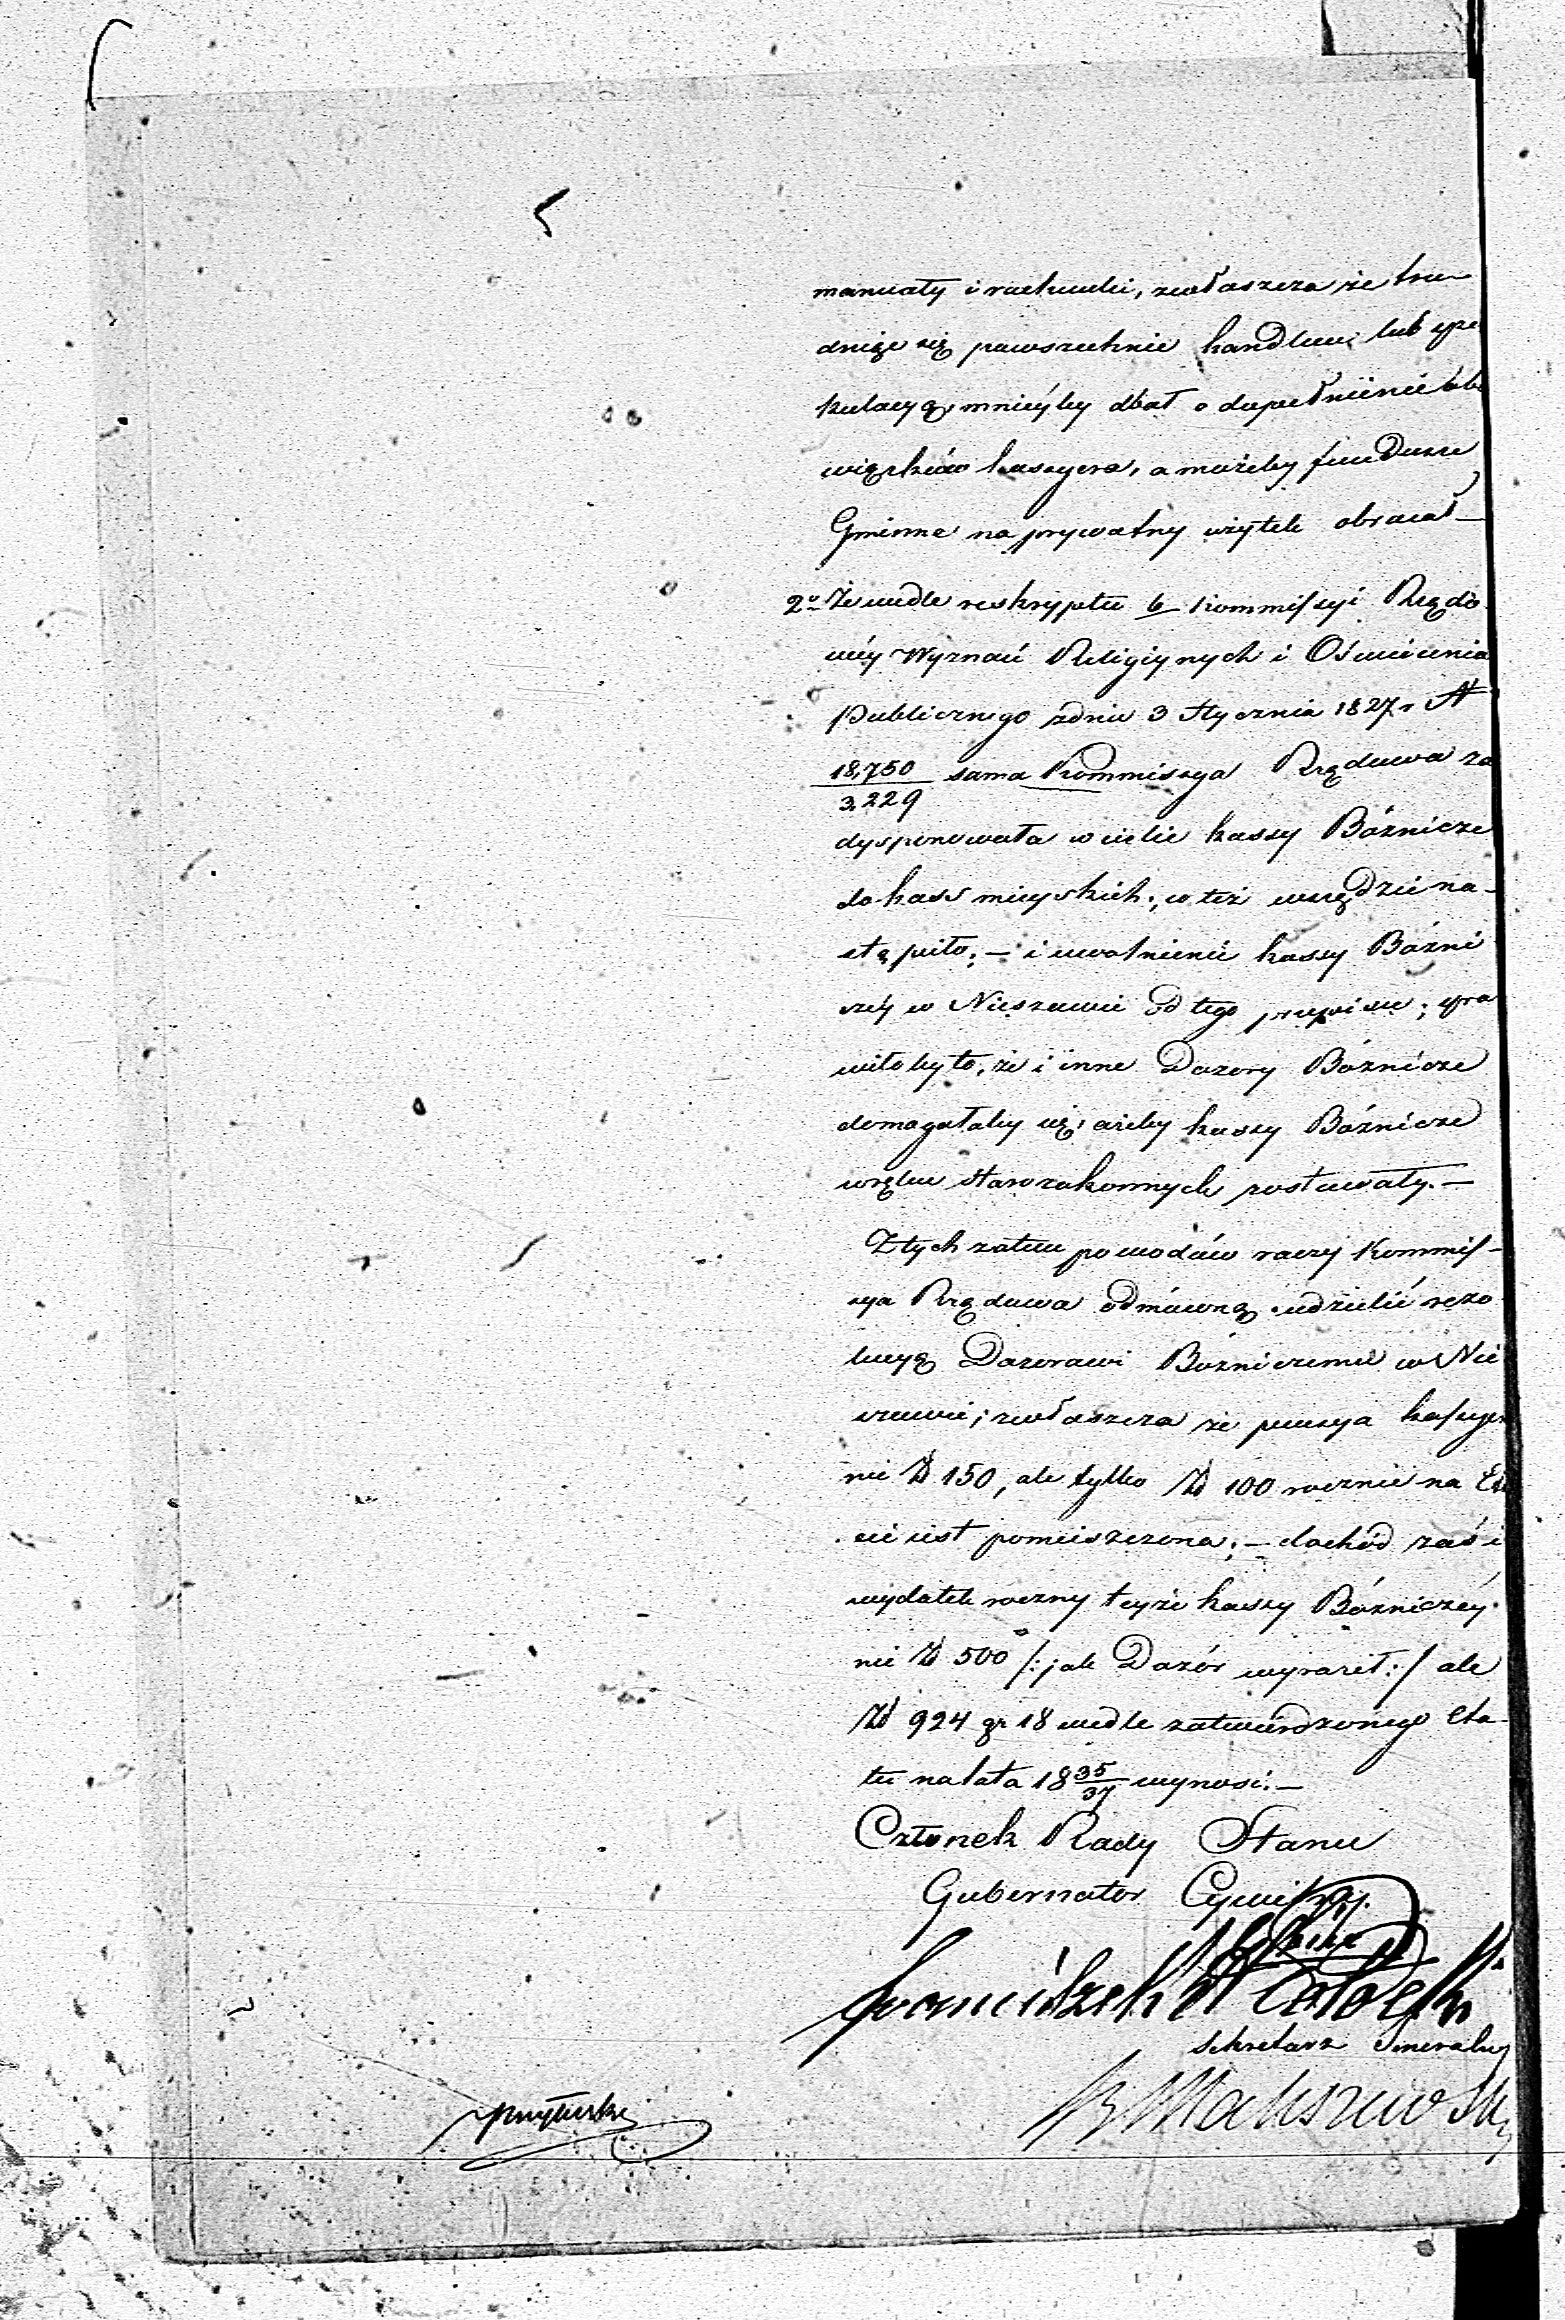 manuały i rachunki, zwłaszcza że tru-
dniąc się powszechnie handlem lub spe
kulacyą, mniéyby dbał o dopełnienie obo
wiązków kassyera, a możeby fundusze
Gminne na prywatny użytek obracał –
2o Że wedle reskryptu b. Kommissyi Rządo
wéy Wyznań Religiynych i Oświecenia
Publicznego z dnia 3 Stycznia 1827 r N
18,750/3,229 sama Kommissya Rządowa za
dysponowała wcielić kassy Bóżnicze
do kass mieyskich; co też wszędzie na-
stąpiło; – i uwolnienie kassy Bóźni
czéy w Nieszawie od tego przepisu; spra
wiłoby to, że i inne Dozory Bóżnicze
domagałyby się, ażeby kassy Bóżnicze
w ręku starozakonnych zostawały. –
Z tych zatem powodów raczy Kommis-
sya Rządowa odmówną udzielić rezo
lucyą Dozorowi Bóżniczemu w Nie
szawie; zwłaszcza że pensya kassyera
nie Zł 150, ale tylko Zł 100 rocznie na Eta
cie iest pomieszczona; – dochód zaś i
wydatek roczny teyże kassy Bóżniczéy
nie Zł 500 /: jak Dozór wyraził :/ ale
Zł 924 gr 18 wedle zatwierdzonego Eta-
tu na lata 18 35/37 wynosi. –
Członek Rady Stanu
Gubernator Cywilny
Sekretarz Generalny